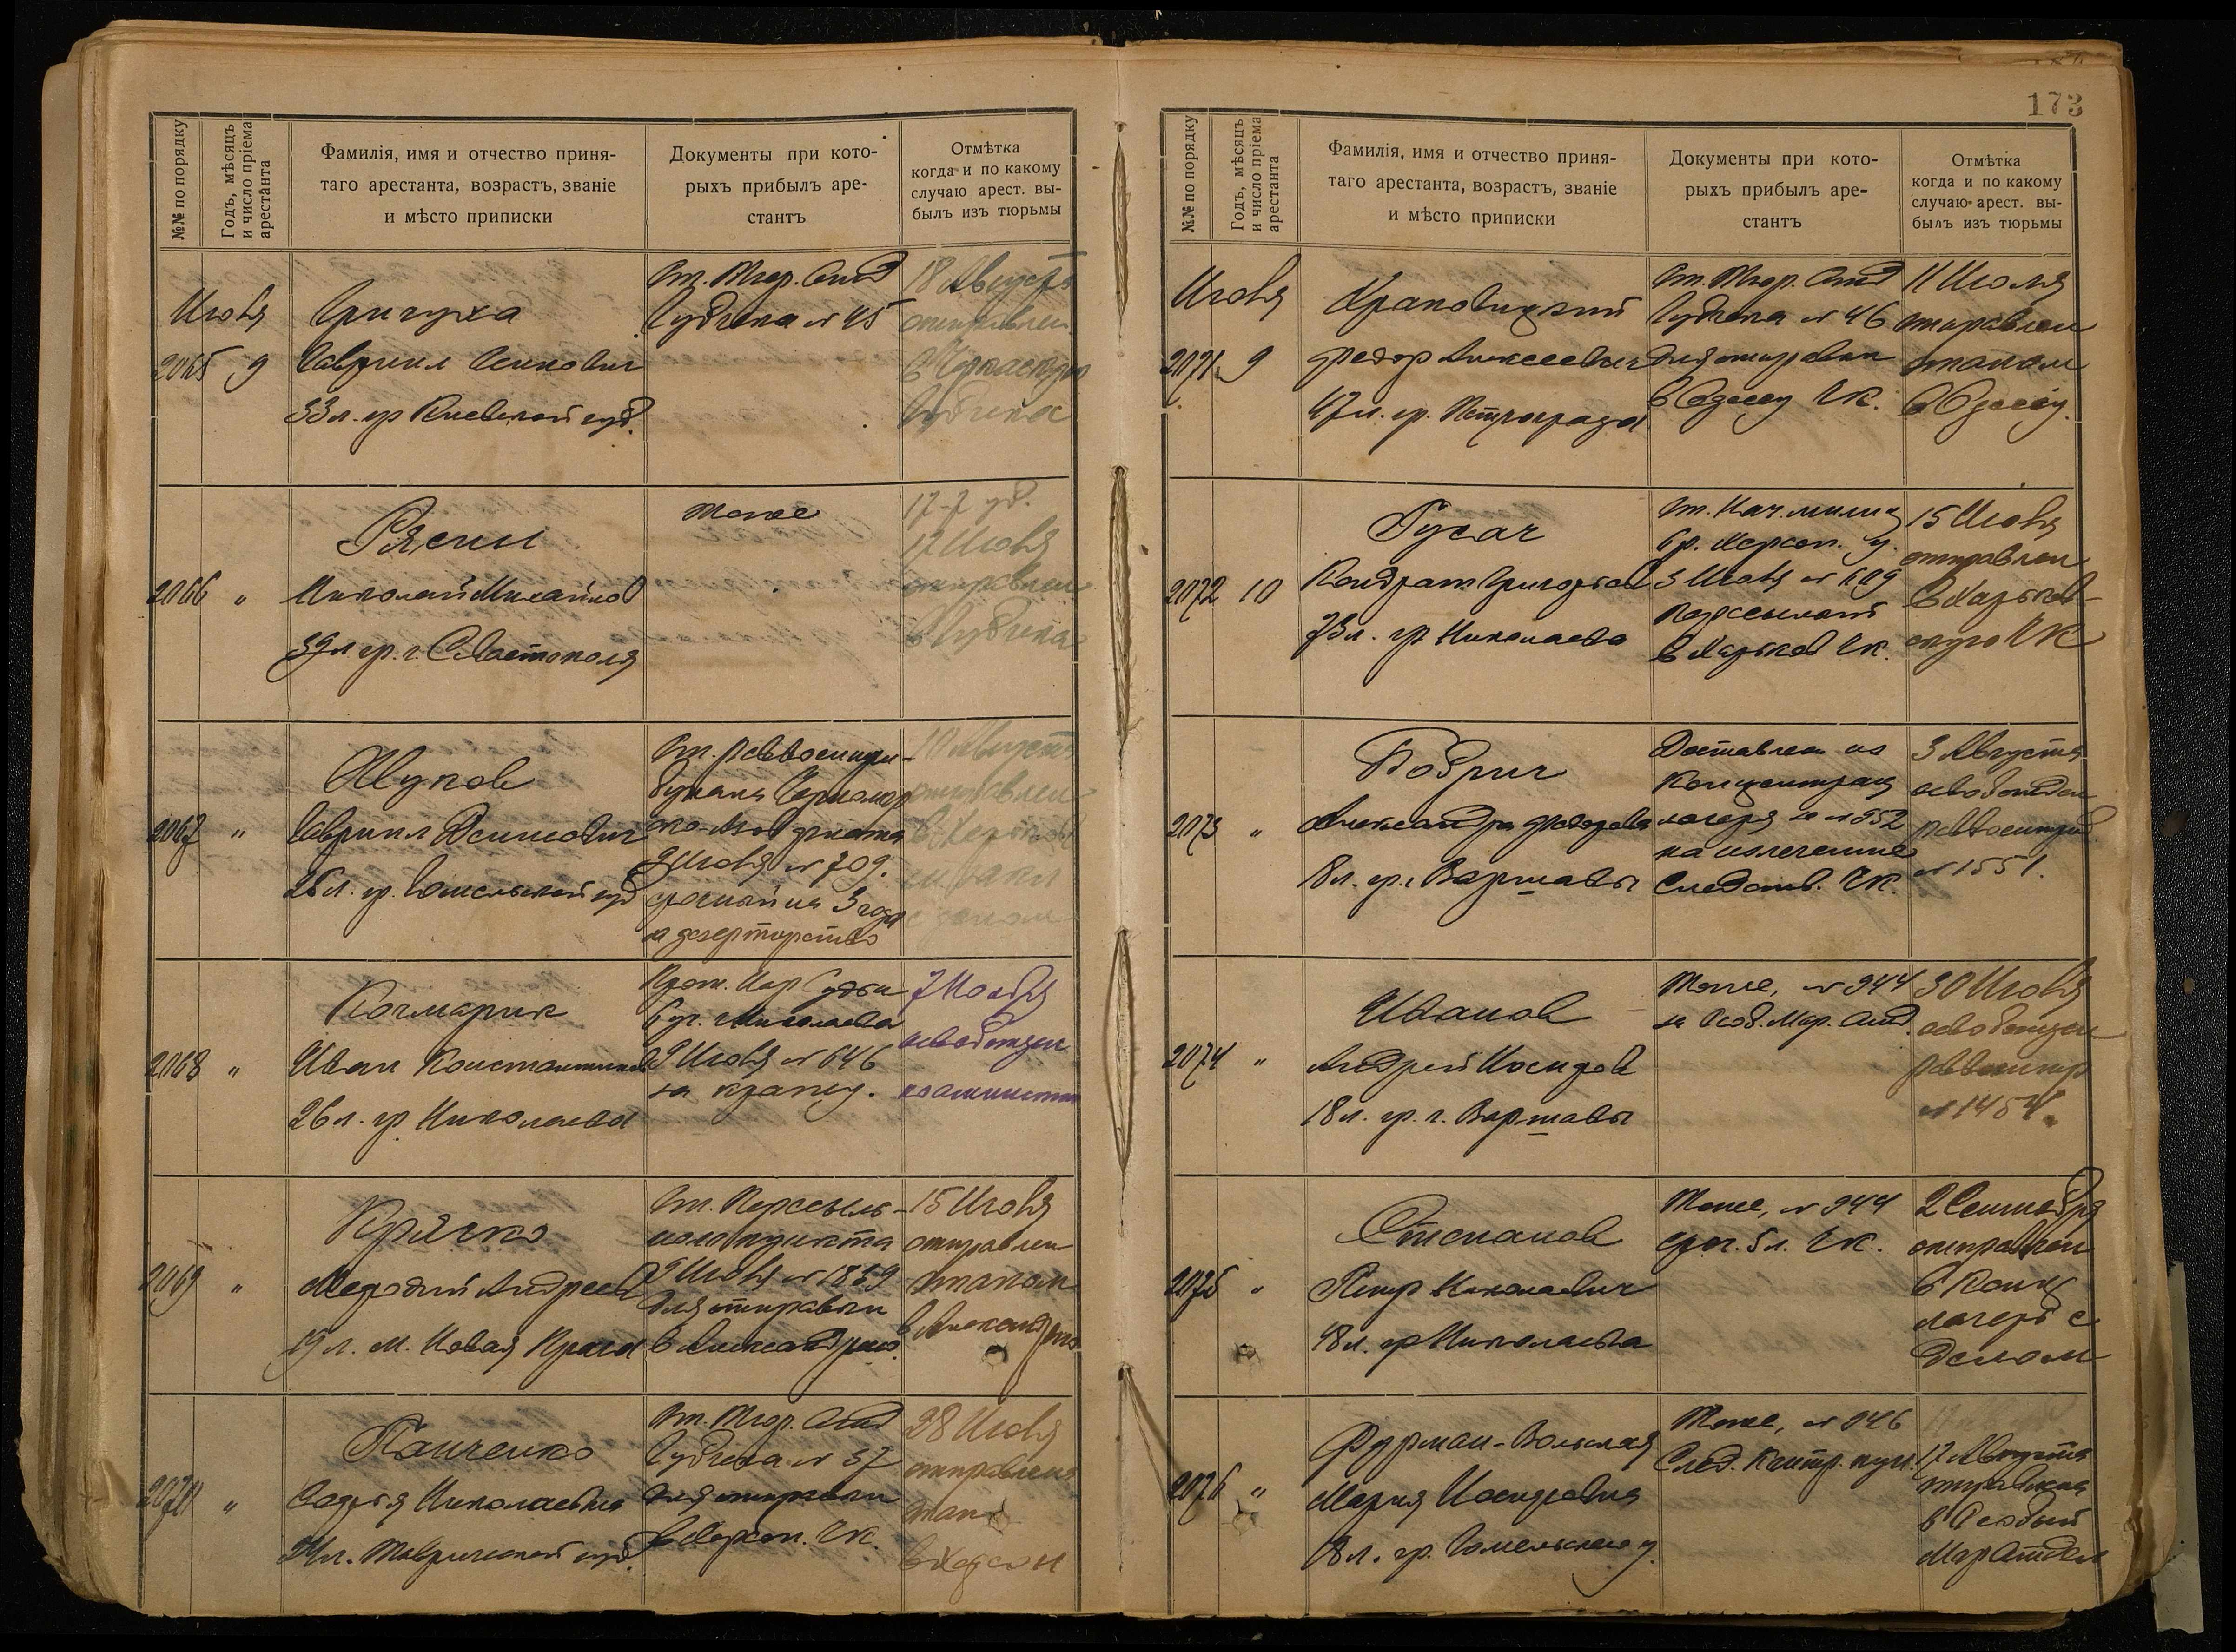 №№ по порядку
Годъ, мѣсяцъ
и число пріема
арестанта
Фамилія, имя и отчество приня-
таго арестанта, возрастъ, званіе
и мѣсто приписки
Документы при кото-
рыхъ прибылъ аре-
стантъ
Отмѣтка
когда и по какому
случаю арест. вы-
былъ изъ тюрьмы
Июля
2065 9
Гавриил
33 л. гр Киевской губ.
От. Тюр. Отд
Губчека № 45
18 Августа
отправлен
в
Губчека
2066 "
Николай Михайлов
39 л гр. г. Севастополя
тоже
17-7 уб.
17 Июля
отправлен
в Губчека
2067 "
Гавриил
26 л. гр.
От. Реввоентри-
бунала
9 Июля № 709.
срочный на 3 года
за дезертирство
10 Августа
отправлен
2068 "
Кочмарик
Иван Константинов
26 л. гр. Николаева
Нар Судьи
6 уч. г. Николаева
9 Июля № 646
за кражу.
7 Ноября
освобожден
по амнистии
2069 "
Крячко
Андреев
19 л. м. Новая Прага
От. Пересыль-
ного пункта
9 Июля № 1859
для отправки
в Александрию.
15 Июля
отправлен
этапом
в Александрию
2070 "
Панченко
Софья Николаевна
24 л. Таврической губ.
От. Тюр. Отд
Губчека № 37
для отправки
в Херсон. ЧК.
28 Июля
отправлена
этап
в Херсон
173
№№ по порядку
Годъ, мѣсяцъ
и число пріема
арестанта
Фамилія, имя и отчество приня-
таго арестанта, возрастъ, званіе
и мѣсто приписки
Документы при кото-
рыхъ прибылъ аре-
стантъ
Отмѣтка
когда и по какому
случаю арест. вы-
былъ изъ тюрьмы
Июля
2071 9
Храповицкий
Федор Алексеевич
47 л. гр. Петрограда
От. Тюр. Отд
Губчека № 46
для отправки
в Одессу ЧК.
11 Июля
отправлен
этапом
в Одессу.
2072 10
Гусач
Кондрат Григорьев
73 л. гр Николаева
От. Нач. милиц
6 р. Херсон. у.
3 Июля № 609
пересыльный
в Харьков ЧК.
15 Июля
отправлен
в Харьков-
скую ЧК
2073 "
Бобрич
Александра Федорова
18 л. гр. г. Варшавы
Доставлен из
Концентрац
лагеря за № 952
на излечение
Следств. ЧК.
3 Августа
освобожден
Реввоентриб
№ 1551.
2074 "
Иванов
Андрей Иосифов
18 л. гр. г. Варшавы
Тоже, № 944
за Особ. Мор. Отд.
30 Июля
освобожден
реввоентр
№ 1454.
2075 "
Степанов
Петр Николаевич
48 л. гр Николаева
Тоже, № 944
сроч. 5 л. ЧК.
2 Сентября
отправлен
в Конц
лагерь с
делом
2076 "
Фурман-Вольская
Мария Иосифовна
18 л. гр. Гомельского у.
Тоже, № 946
След. Контр.
17 Августа
отправлена
в Особый
Мор Отдел